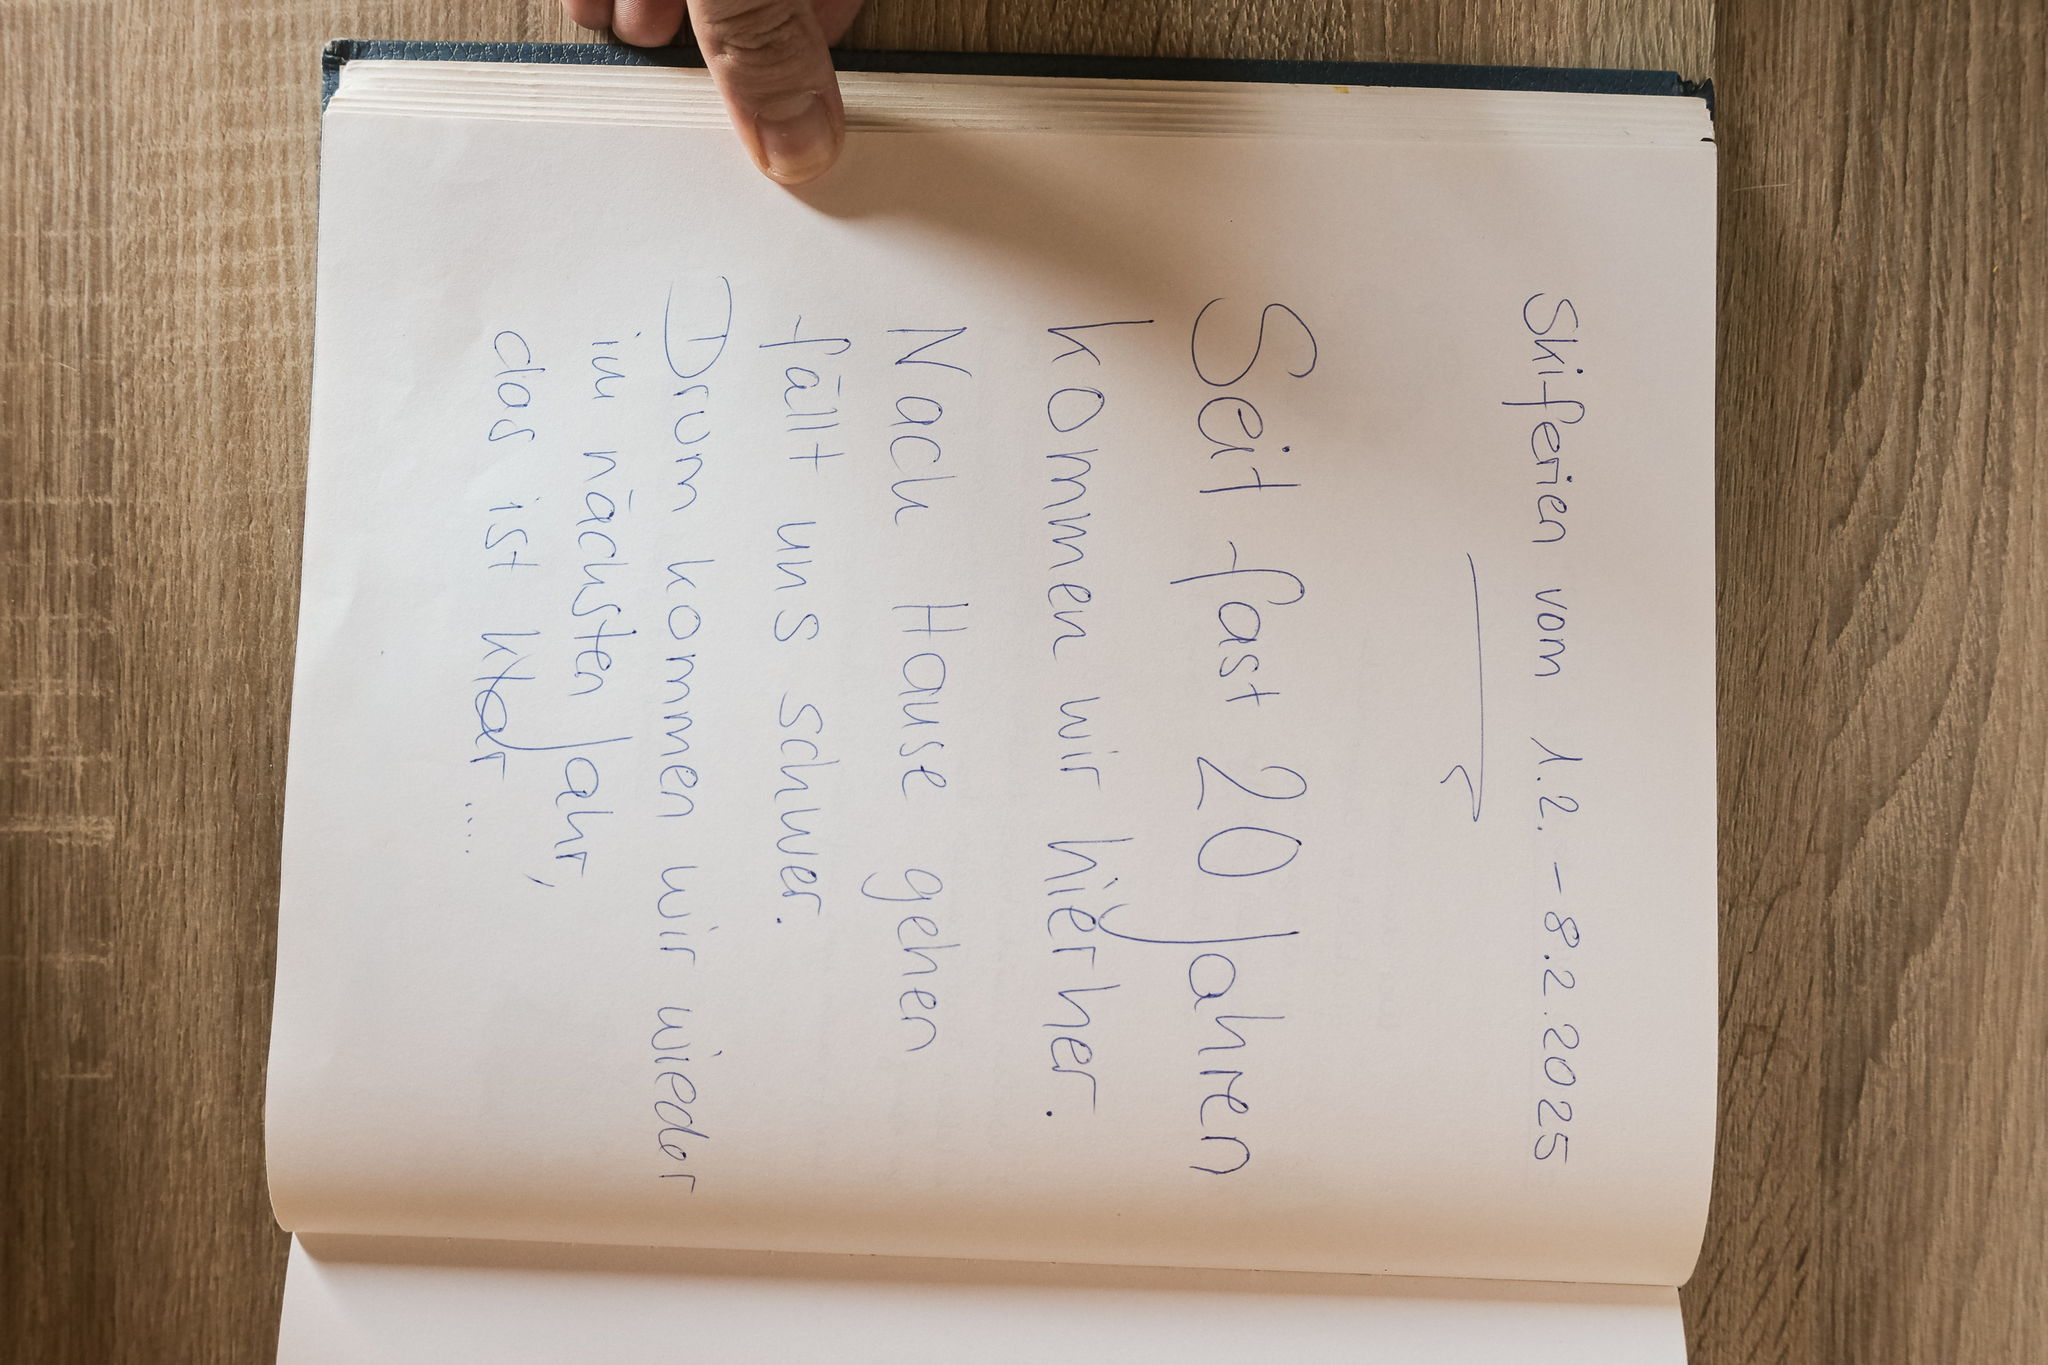 Skiferien vom 1.2. - 8.2.2025
Seit fast 20 Jahren
kommen wir hierher.
Nach Hause gehen
fällt uns schwer.
Drum kommen wir wieder
im nächsten Jahr,
das ist klar.....